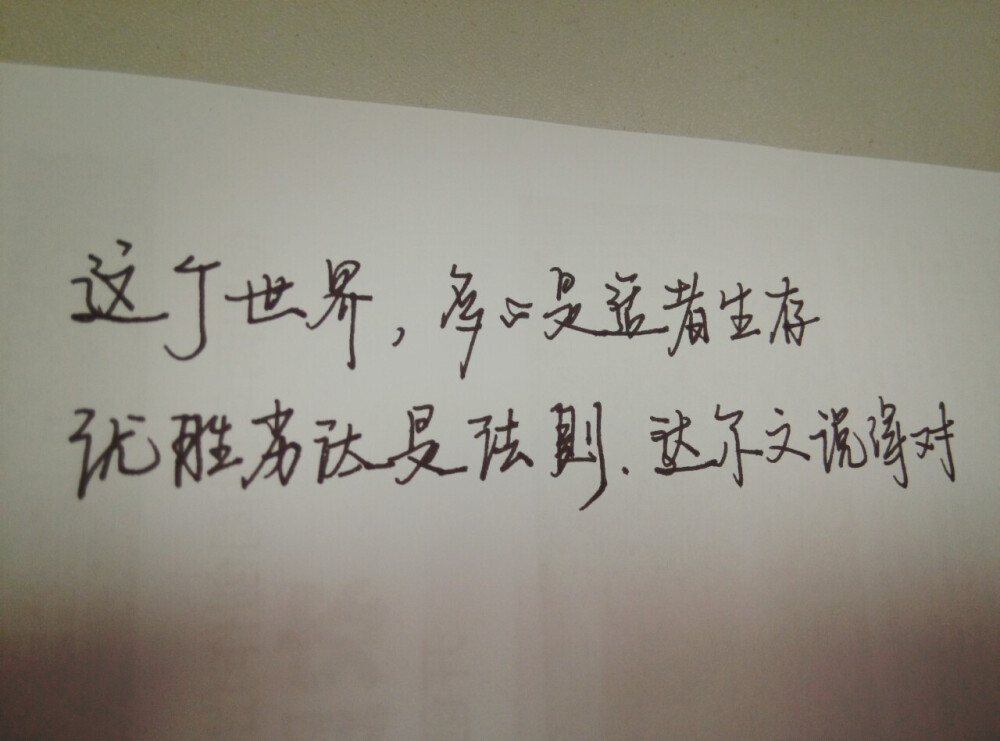 这个世界，多么是适者生存
优胜劣汰是法则.达尔文说得对